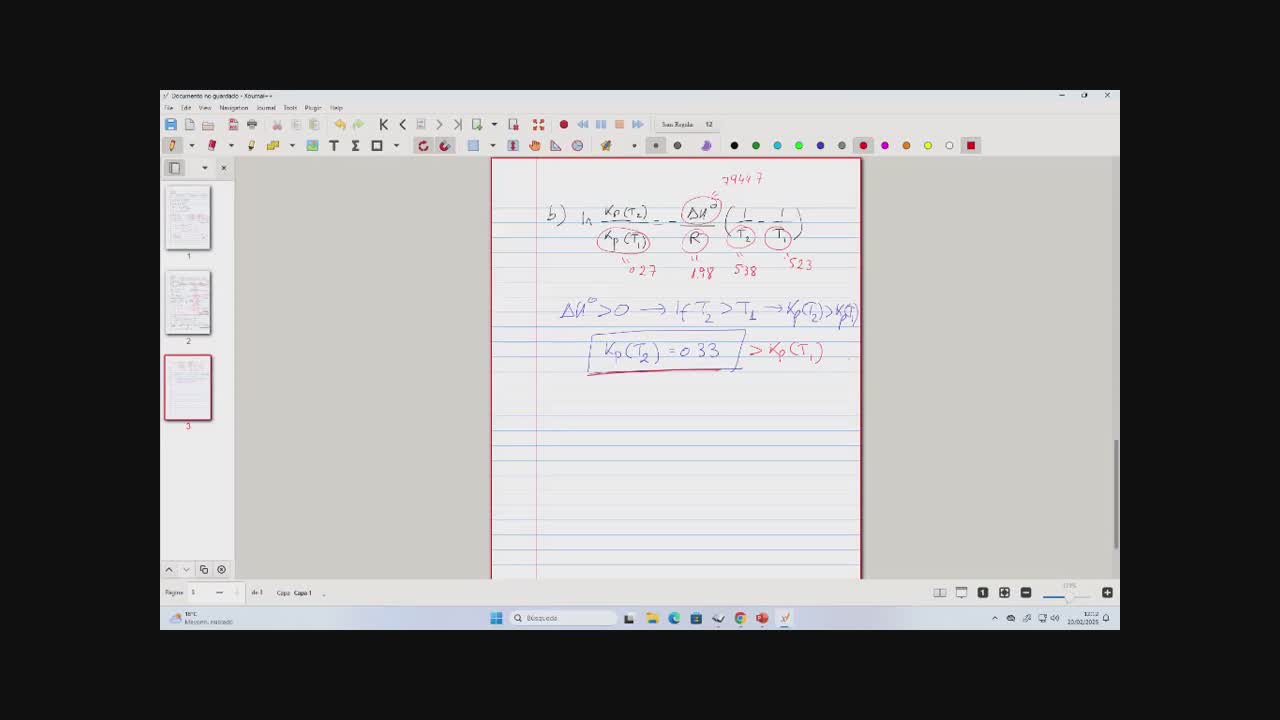 Documento no guardado - Xournal++
File Edit View Navigation Journal Tools Plugin Help
12
79447
b) ln Kp(T2) / Kp(T1) = - ΔH° / R (1/T2 - 1/T1)
0.27 1.98 538 523
ΔH° > 0 → If T2 > T1 → Kp(T2) > Kp(T1)
Kp(T2) = 0.33 > Kp(T1)
1
2
3
Página
Capa Capa 1
Búsqueda
18°C
12:12
20/02/2025